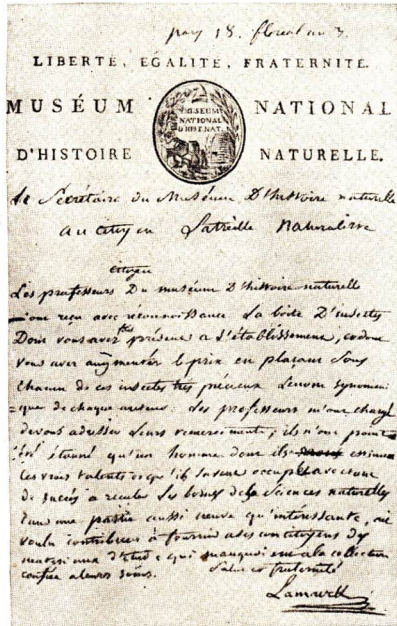 18. floreal an 3.
LIBERTÉ, EGALITÉ, FRATERNITÉ.
MUSÉUM NATIONAL
MUSEUM
NATIONAL
D'HIST. NAT.
D'HISTOIRE NATURELLE.
Le Secrétaire du Muséum D'histoire naturelle
au citoyen Latreille Naturaliste
citoyen
Les professeurs Du muséum D'histoire naturelle
ont reçu avec reconnoissance La boite D'insectes
Dont vous avez présent a L'établissement,
vous avez augmenter le prix en plaçant Sous
chacun de ces insectes tres précieux
de chaque auteur. Les professeurs m'ont chargé
de vous adresser Leurs remerciements; ils n'ont point
été étonné qu'un homme dont ils
Les vrais talents et qui s'est occupé avec
de succès a reculer Les bornes de la Sciences naturelles
dans une partie aussi neuve qu'intéressante, ait
voulu contribuer a fournir a ses concitoyens des
materiaux d'étude qui manquoient a la collection
confiée a leurs soins. Salut et fraternité
Lamarck